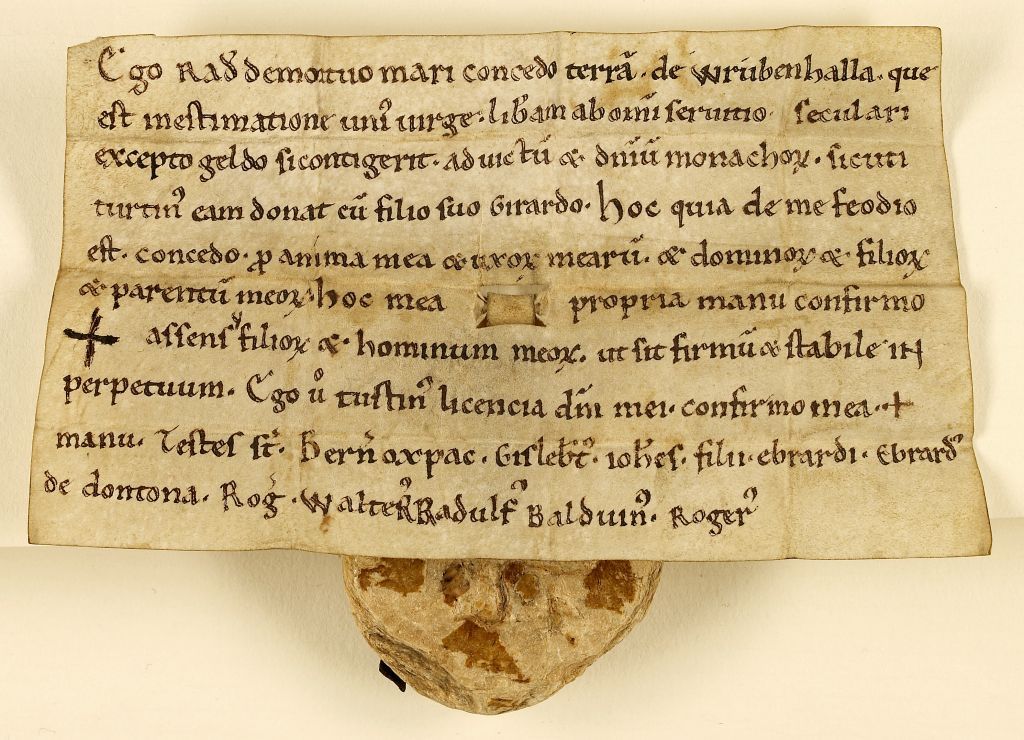 Ego Rad̄ de mortuo mari concedo terrā · de wribenhalla · que
est inestimatione uni᾽ uirge · lib̄am ab om̄i seruitio · seculari
excepto geldo si contigerit · ad uictū & dn̄iū monachoꝝ · sicuti
turtin᾽ eam donat cū filio suo Girardo · hoc quia de me feodio
est · concedo · ꝓ anima mea & uxoꝝ mearū · & dominoꝝ & filioꝝ
& parentū meoꝝ · hoc mea propria manu confirmo
+ assensu filioꝝ & · hominum meoꝝ · ut sit firmū & stabile in
perpetuum · Ego u᷎ tustin᾽ licencia dn̄i mei · confirmo mea · +
manu · Testes st̄ · Bern̄ oxpac · Gisleb̄t᾽ · ioh̄es · filii · ebrardi · Ebrard᾽
de dontona · Roḡ · Walter᾽ Radulf᾽ Balduin᾽ · Roger᾽